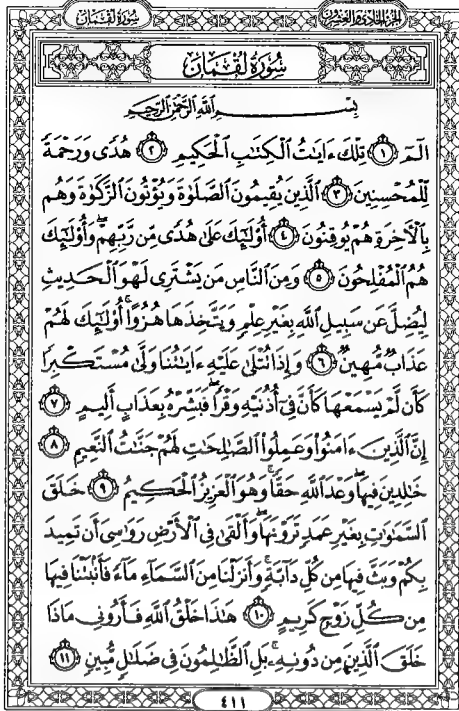 سُورَةُ لُقْمَان
الجُزْءُ الحَادِي وَالعِشْرُون
سُورَةُ لُقْمَان
بِسْمِ اللَّهِ الرَّحْمَٰنِ الرَّحِيمِ
الٓمٓ ۝١ تِلْكَ ءَايَٰتُ ٱلْكِتَٰبِ ٱلْحَكِيمِ ۝٢ هُدًى وَرَحْمَةً
لِّلْمُحْسِنِينَ ۝٣ ٱلَّذِينَ يُقِيمُونَ ٱلصَّلَوٰةَ وَيُؤْتُونَ ٱلزَّكَوٰةَ وَهُم
بِٱلْءَاخِرَةِ هُمْ يُوقِنُونَ ۝٤ أُو۟لَٰٓئِكَ عَلَىٰ هُدًى مِّن رَّبِّهِمْ ۖ وَأُو۟لَٰٓئِكَ
هُمُ ٱلْمُفْلِحُونَ ۝٥ وَمِنَ ٱلنَّاسِ مَن يَشْتَرِى لَهْوَ ٱلْحَدِيثِ
لِيُضِلَّ عَن سَبِيلِ ٱللَّهِ بِغَيْرِ عِلْمٍ وَيَتَّخِذَهَا هُزُوًا ۚ أُو۟لَٰٓئِكَ لَهُمْ
عَذَابٌ مُّهِينٌ ۝٦ وَإِذَا تُتْلَىٰ عَلَيْهِ ءَايَٰتُنَا وَلَّىٰ مُسْتَكْبِرًا
كَأَن لَّمْ يَسْمَعْهَا كَأَنَّ فِىٓ أُذُنَيْهِ وَقْرًا ۖ فَبَشِّرْهُ بِعَذَابٍ أَلِيمٍ ۝٧
إِنَّ ٱلَّذِينَ ءَامَنُوا۟ وَعَمِلُوا۟ ٱلصَّٰلِحَٰتِ لَهُمْ جَنَّٰتُ ٱلنَّعِيمِ ۝٨
خَٰلِدِينَ فِيهَا ۖ وَعْدَ ٱللَّهِ حَقًّا ۚ وَهُوَ ٱلْعَزِيزُ ٱلْحَكِيمُ ۝٩ خَلَقَ
ٱلسَّمَٰوَٰتِ بِغَيْرِ عَمَدٍ تَرَوْنَهَا ۖ وَأَلْقَىٰ فِى ٱلْأَرْضِ رَوَٰسِىَ أَن تَمِيدَ
بِكُمْ وَبَثَّ فِيهَا مِن كُلِّ دَآبَّةٍ ۚ وَأَنزَلْنَا مِنَ ٱلسَّمَآءِ مَآءً فَأَنۢبَتْنَا فِيهَا
مِن كُلِّ زَوْجٍ كَرِيمٍ ۝١٠ هَٰذَا خَلْقُ ٱللَّهِ فَأَرُونِى مَاذَا
خَلَقَ ٱلَّذِينَ مِن دُونِهِۦ ۚ بَلِ ٱلظَّٰلِمُونَ فِى ضَلَٰلٍ مُّبِينٍ ۝١١
٤١١